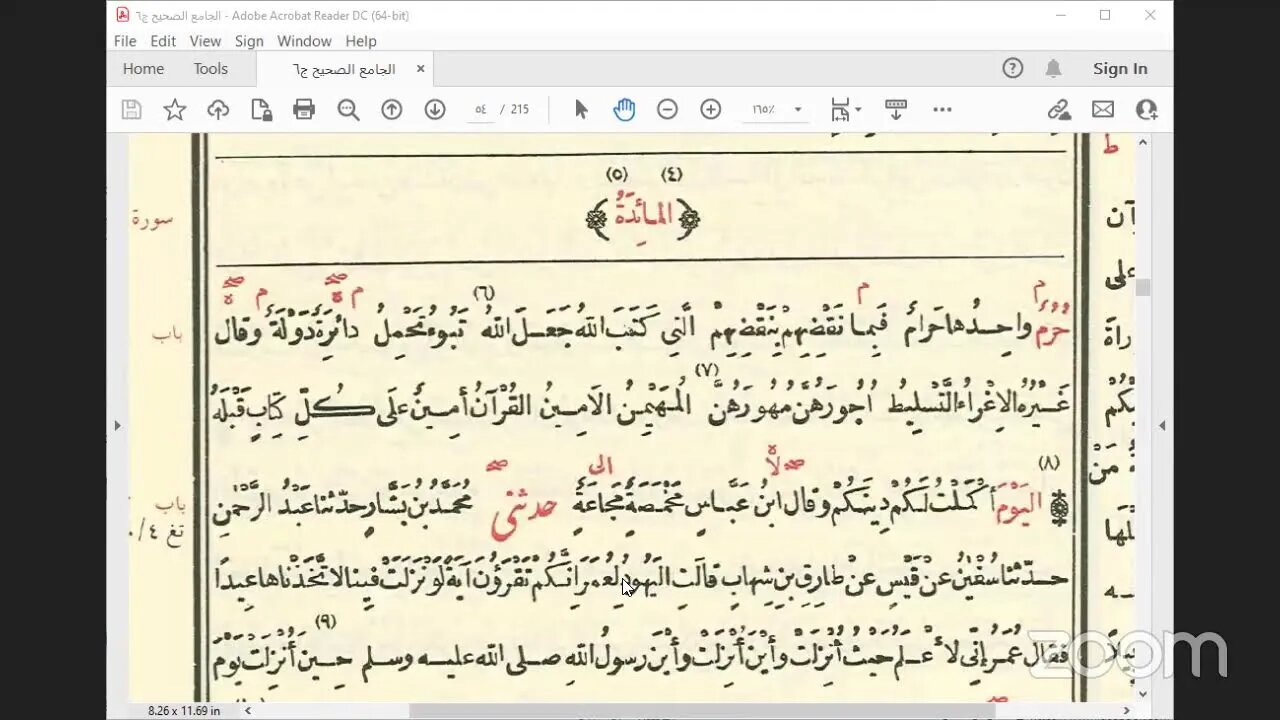 الجامع الصحيح ج٦ - Adobe Acrobat Reader DC (64-bit)
File Edit View Sign Window Help
Home Tools الجامع الصحيح ج٦ × Sign In
٥٤ / 215 ١٦٥٪
(٤) (٥)
سورة
﴿المَائِدَةُ﴾
باب
م م (٦) م صح م صح
حُرُمٌ واحِدُها حَرامٌ فَبِما نَقْضِهِمْ بِنَقْضِهِمْ الَّتِي كَتَبَ اللهُ جَعَلَ اللهُ تَبُوءُ تَحْمِلُ دائِرَةٌ دَوْلَةٌ وقال
(٧)
غَيْرُهُ الاِغْراءُ التَّسْلِيطُ أُجُورَهُنَّ مُهُورَهُنَّ المُهَيْمِنُ الأَمِينُ القُرْآنُ أَمِينٌ عَلَى كُلِّ كِتابٍ قَبْلَهُ
(٨) صح لا الى صح
باب
اليَوْمَ أَكْمَلْتُ لَكُمْ دِينَكُمْ وقال ابنُ عَبَّاسٍ مَخْمَصَةٌ مَجاعَةٌ حدثني مُحَمَّدُ بنُ بَشَّارٍ حدّثنا عَبْدُ الرَّحْمٰنِ
تغ ٤/
حدّثنا سُفْيٰنُ عنْ قَيْسٍ عنْ طارِقِ بنِ شِهابٍ قالَتِ اليَهُودُ لِعُمَرَ إِنَّكُمْ تَقْرَؤُنَ آيَةً لَوْ نَزَلَتْ فِينا لاتَّخَذْناها عِيدًا
(٩)
فقال عُمَرُ إِنِّي لَأَعْلَمُ حَيْثُ أُنْزِلَتْ وأَيْنَ أُنْزِلَتْ وأَيْنَ رسولُ اللهِ صلى الله عليه وسلم حِينَ أُنْزِلَتْ يَوْمَ
ط
آن
على
مَنْ
zoom
8.26 x 11.69 in